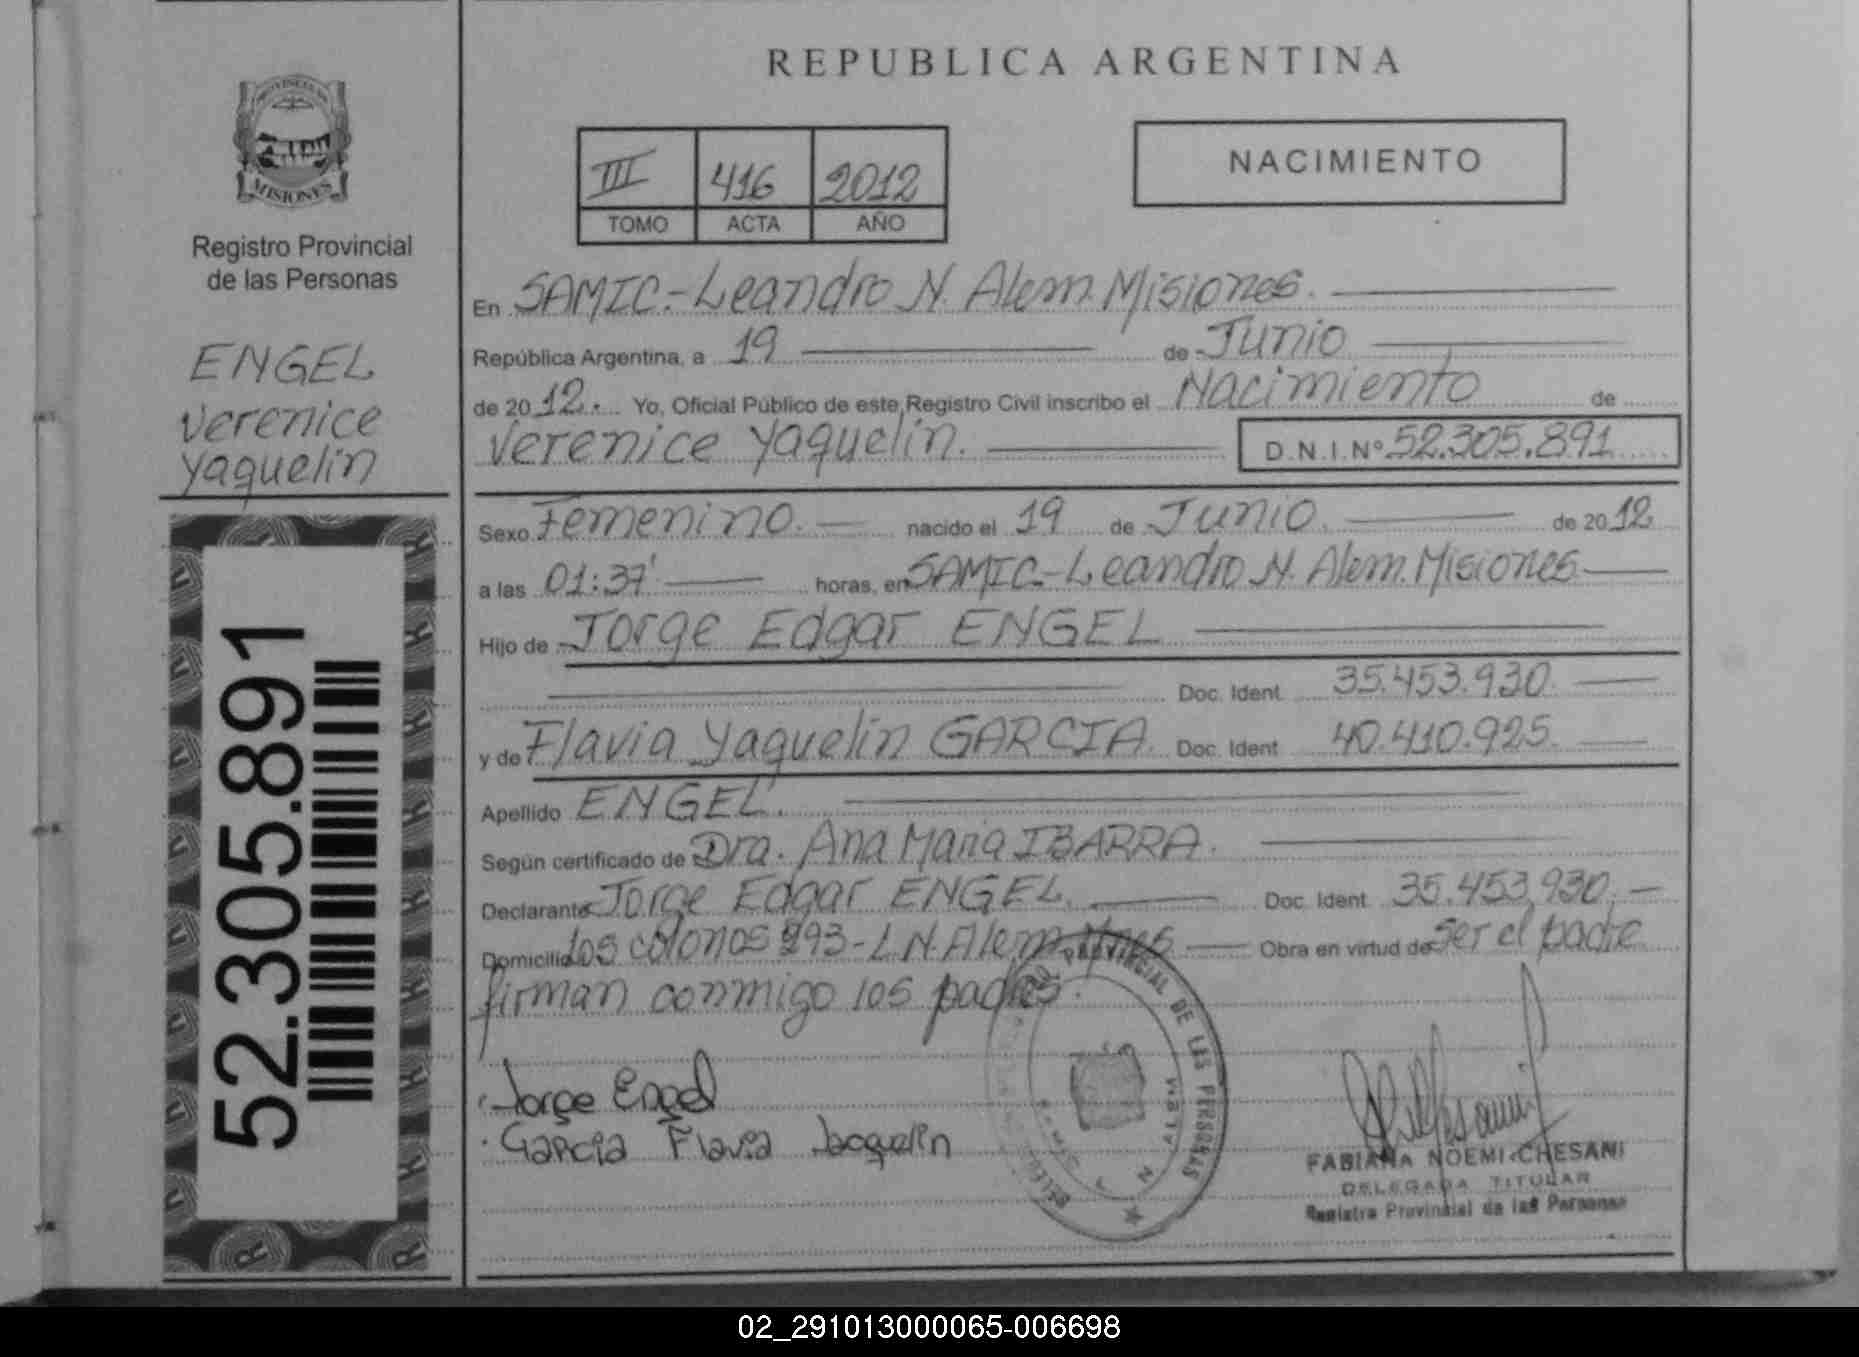 REPUBLICA ARGENTINA
PROVINCIA DE
MISIONES
Registro Provincial
de las Personas
ENGEL
Verenice
Yaquelin
52.305.891
III 416 2012
TOMO ACTA AÑO
NACIMIENTO
En SAMIC.-Leandro N. Alem. Misiones.
República Argentina, a 19 de Junio
de 20 12. Yo, Oficial Público de este Registro Civil inscribo el Nacimiento de
Verenice Yaquelin. D.N.I.Nº 52.305.891
Sexo Femenino. nacido el 19 de Junio. de 20 12
a las 01:37' horas, en SAMIC.-Leandro N. Alem. Misiones
Hijo de Jorge Edgar ENGEL
Doc. Ident. 35.453.930.
y de Flavia Yaquelin GARCIA. Doc. Ident 40.410.925.
Apellido ENGEL.
Según certificado de Dra. Ana Maria IBARRA.
Declarante Jorge Edgar ENGEL. Doc. Ident 35.453.930.
Domicilio los colonos 293-L.N. Alem Mnes. Obra en virtud de ser el padre
firman conmigo los padres.
Jorge Engel
Garcia Flavia Jacquelin
PROVINCIAL DE LAS PERSONAS
FABIANA NOEMI CHESANI
DELEGADA TITULAR
Registro Provincial de las Personas
02_291013000065-006698